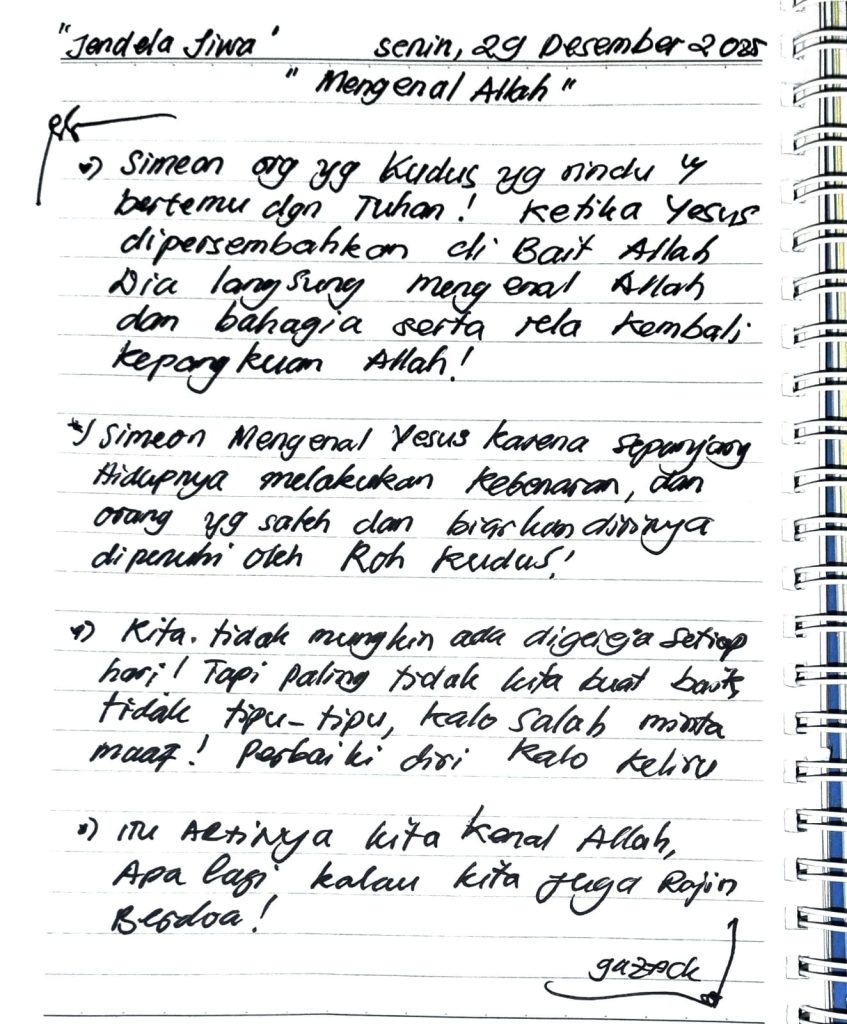 "Jendela Jiwa" Senin, 29 Desember 2025
"Mengenal Allah"
Simeon org yg Kudus yg rindu
bertemu dgn Tuhan! Ketika Yesus
dipersembahkan di Bait Allah
Dia langsung mengenal Allah
dan bahagia serta rela kembali
kepangkuan Allah!
*) Simeon Mengenal Yesus karena sepanjang
Hidupnya melakukan kebenaran, dan
orang yg saleh dan biarkan dirinya
dipenuhi oleh Roh Kudus!
Kita. tidak mungkin ada digereja setiap
hari! Tapi paling tidak kita buat baik,
tidak tipu-tipu, kalo salah minta
maaf! Perbaiki diri kalo keliru
itu Artinya kita kenal Allah,
Apa lagi kalau kita juga Rajin
Berdoa!